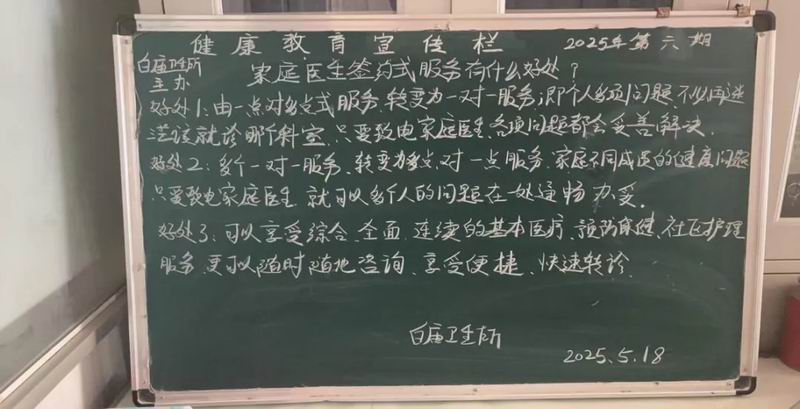 健康教育宣传栏 2025年第六期
白庙卫生所
主办
家庭医生签约式服务有什么好处?
好处1:由一点对多点式服务,转变为一对一服务,即个人多项问题,不必再迷
茫该就诊哪个科室,只要致电家庭医生,各项问题都会妥善解决.
好处2:多个一对一服务、转变为多点对一点服务,家庭不同成员的健康问题
只要致电家庭医生,就可以多个人的问题在一处通畅办妥.
好处3:可以享受综合、全面、连续的基本医疗、预防保健、社区护理
服务,更可以随时随地咨询、享受便捷、快速转诊
白庙卫生所
2025.5.18